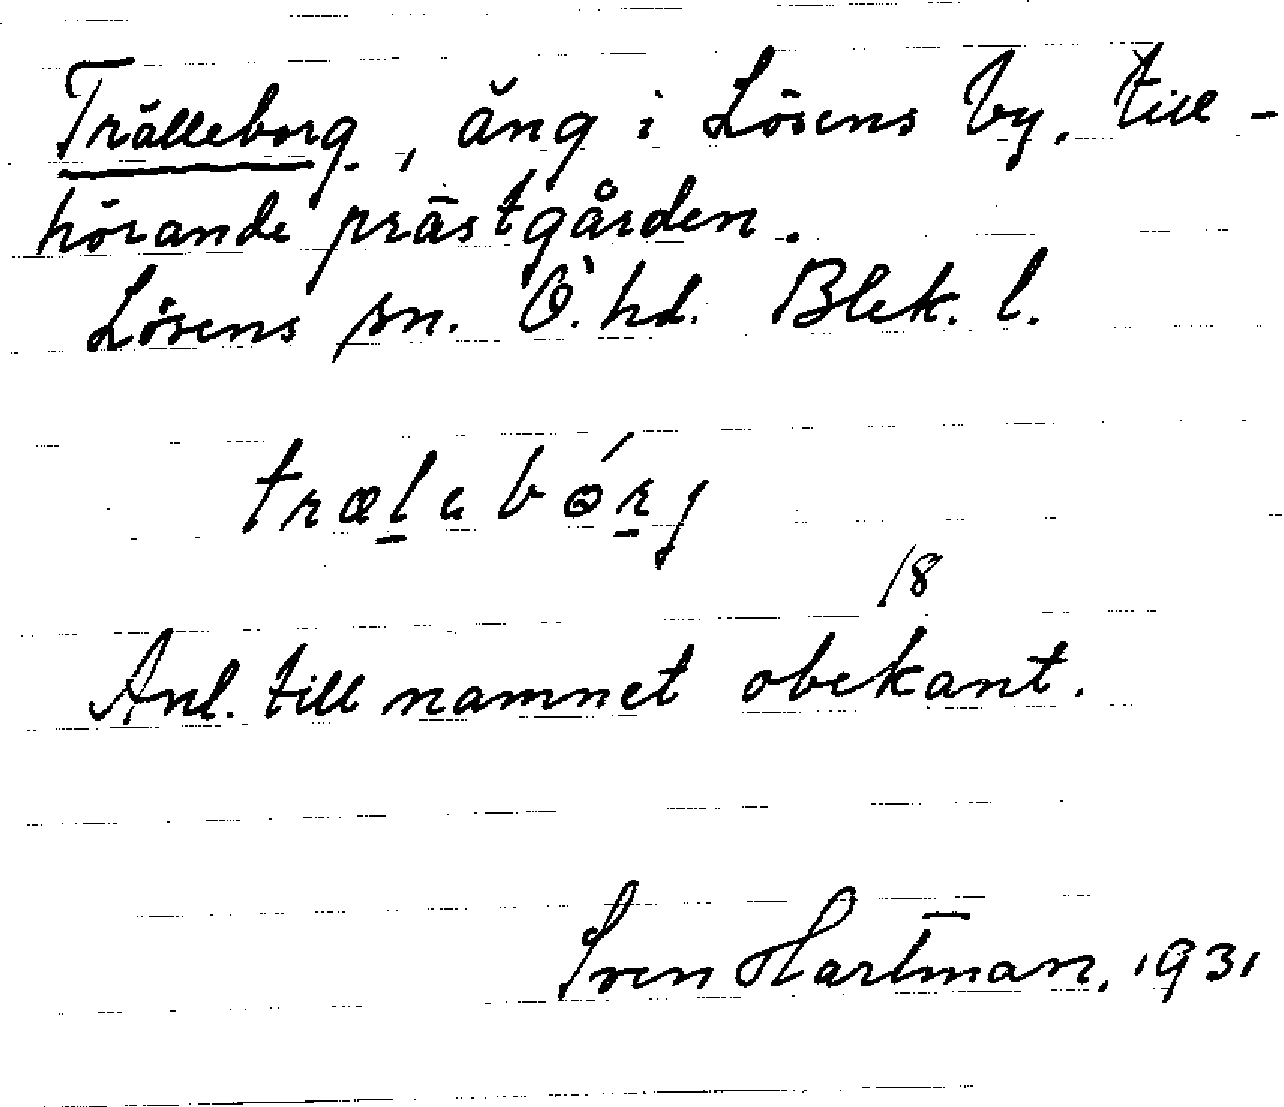 Trälleborg, äng i Lösens by, till-
hörande prästgården.
Lösens sn. Ö. hd. Blek. l.
træleborj
18
Anl. till namnet obekant.
Sven Hartman, 1931